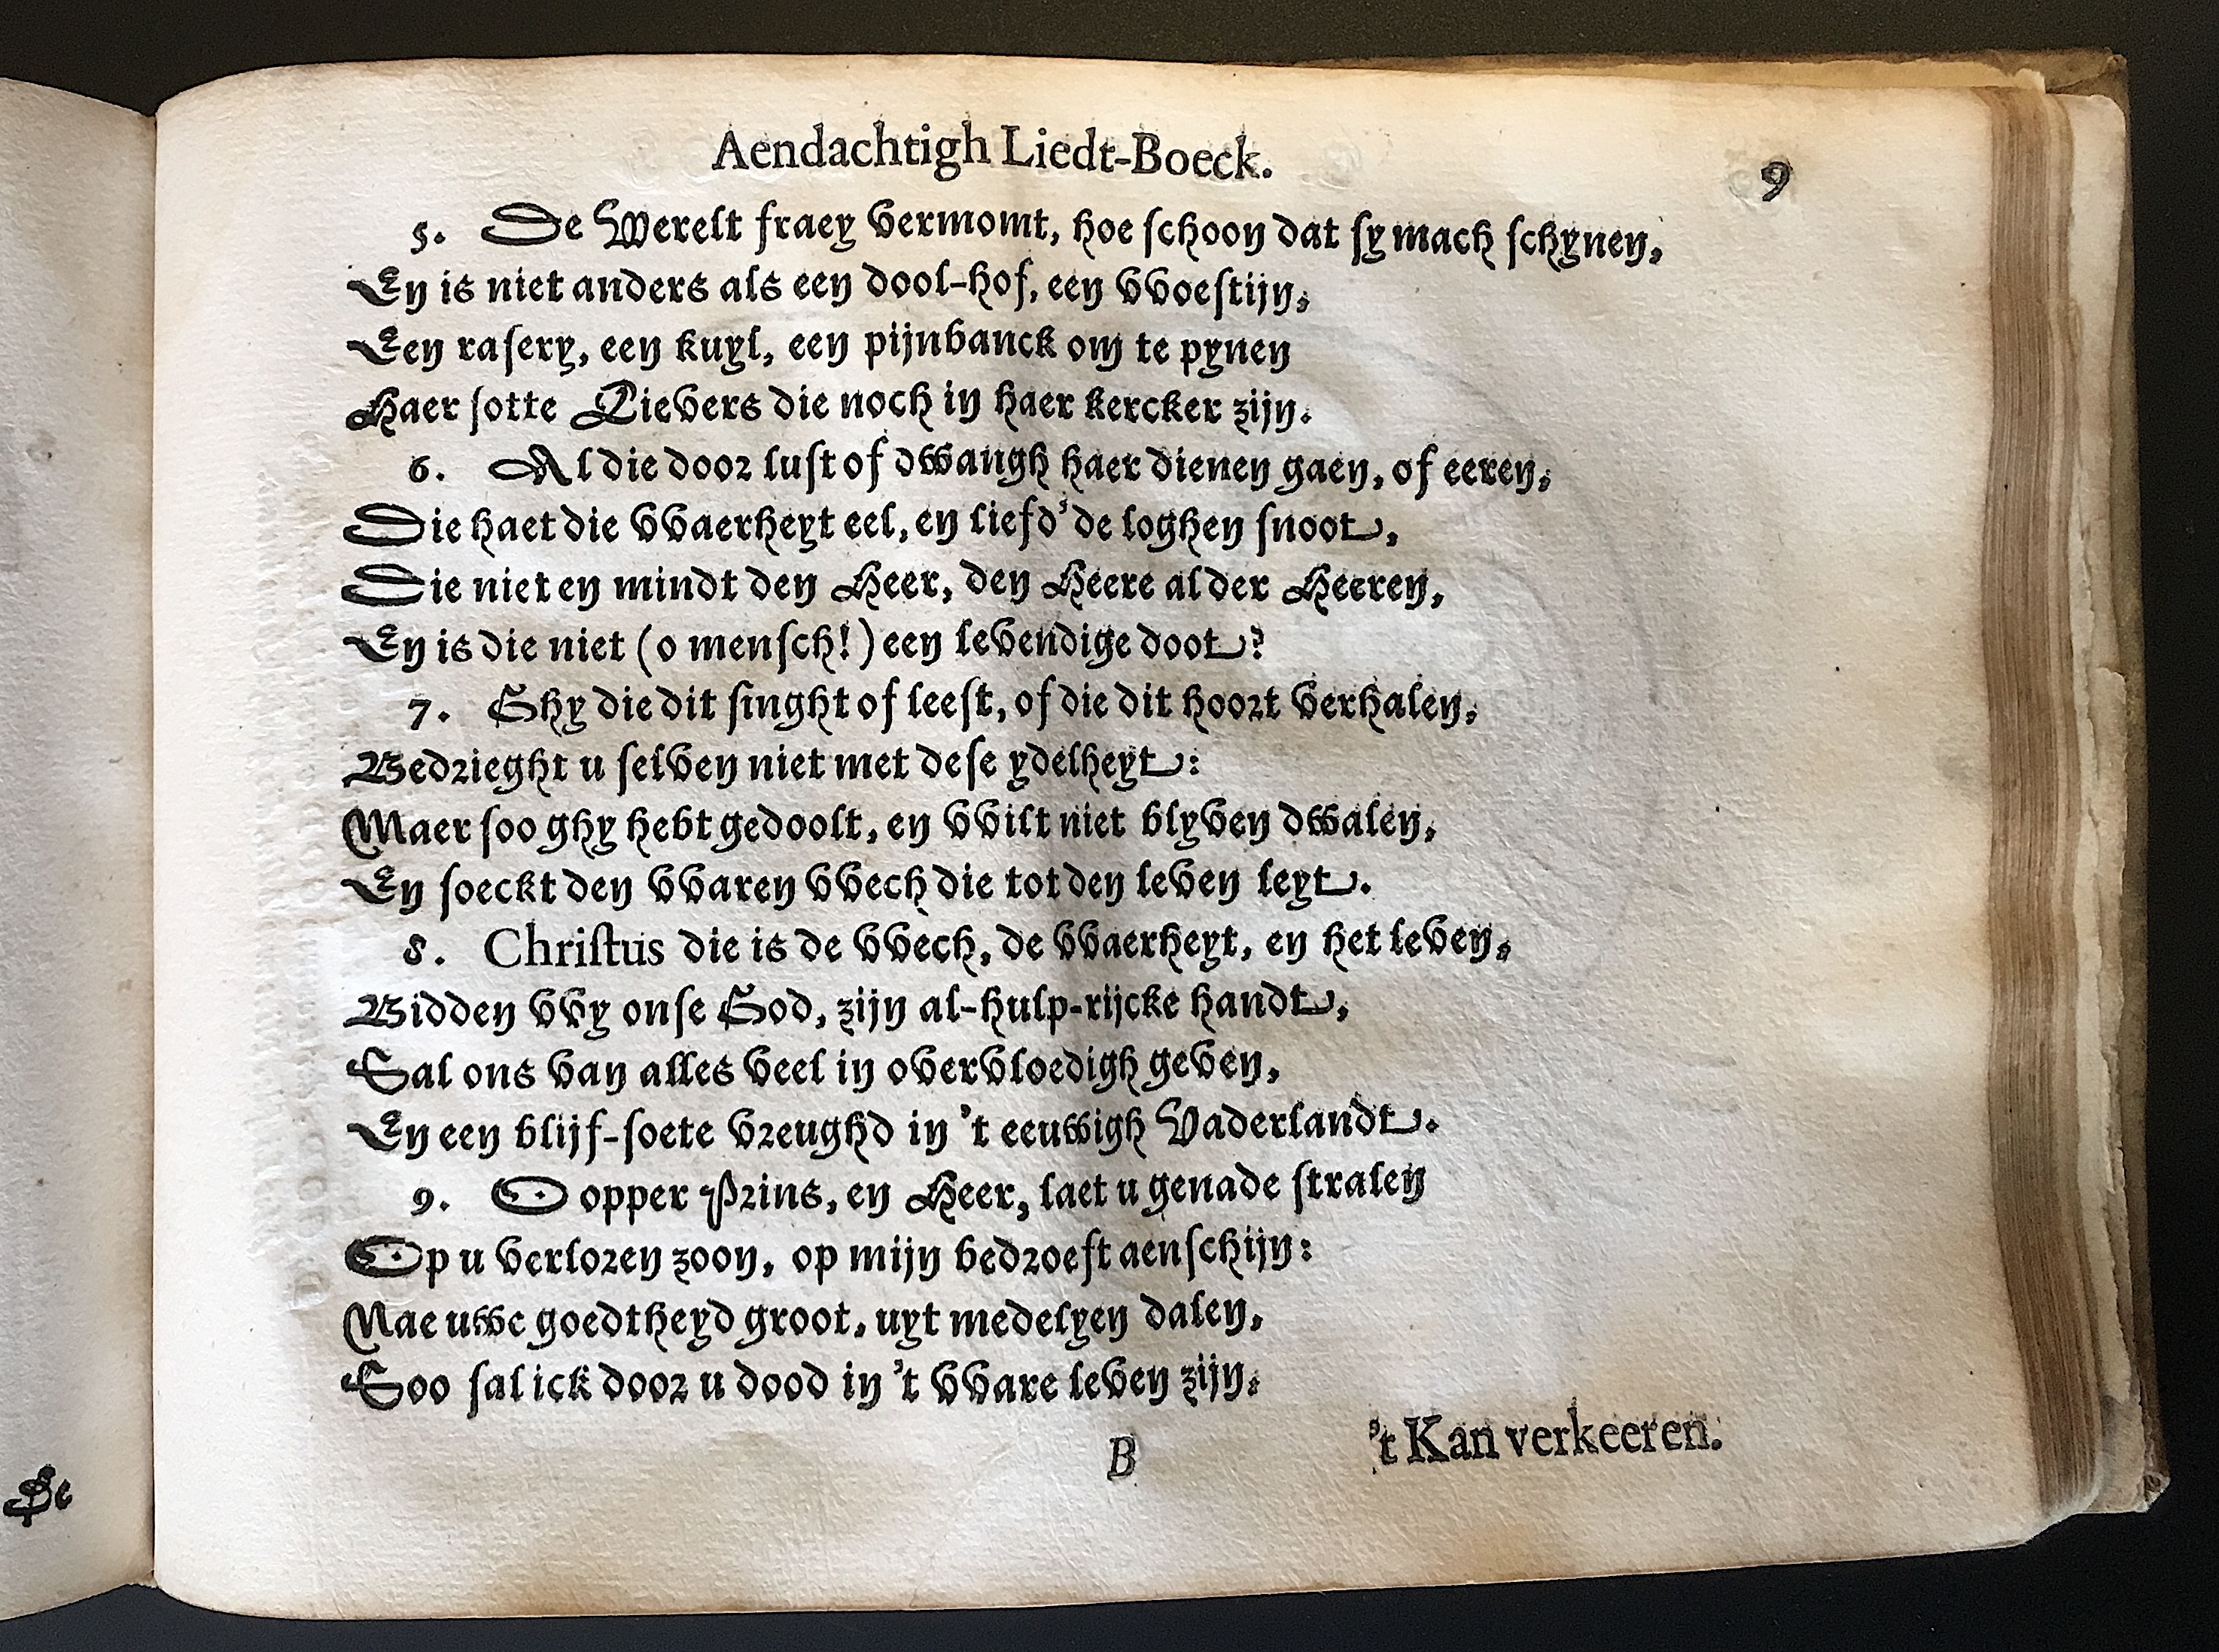 Aendachtigh Liedt-Boeck. 9
5. De Werelt fraey vermomt, hoe schoon dat sy mach schynen,
En is niet anders als een dool-hof, een vvoestijn,
Een rasery, een kuyl, een pijnbanck om te pynen
Haer sotte Lievers die noch in haer kercker zijn.
6. Al die door lust of dwangh haer dienen gaen, of eeren,
Die haet die vvaerheyt eel, en liefd' de loghen snoot,
Die niet en mindt den Heer, den Heere alder Heeren,
En is die niet (o mensch!) een levendige doot?
7. Ghy die dit singht of leest, of die dit hoort verhalen,
Bedrieght u selven niet met dese ydelheyt:
Maer soo ghy hebt gedoolt, en vvilt niet blyven dwalen,
En soeckt den vvaren vvech die tot den leven leyt.
8. Christus die is de vvech, de vvaerheyt, en het leven,
Bidden vvy onse God, zijn al-hulp-rijcke handt,
Sal ons van alles veel in overvloedigh geven,
En een blijf-soete vreughd in 't eeuwigh Vaderlandt.
9. O opper Prins, en Heer, laet u genade stralen
Op u verloren zoon, op mijn bedroeft aenschijn:
Nae uwe goedtheyd groot, uyt medelyen dalen,
Soo sal ick door u dood in 't vvare leven zijn.
B 't Kan verkeeren.